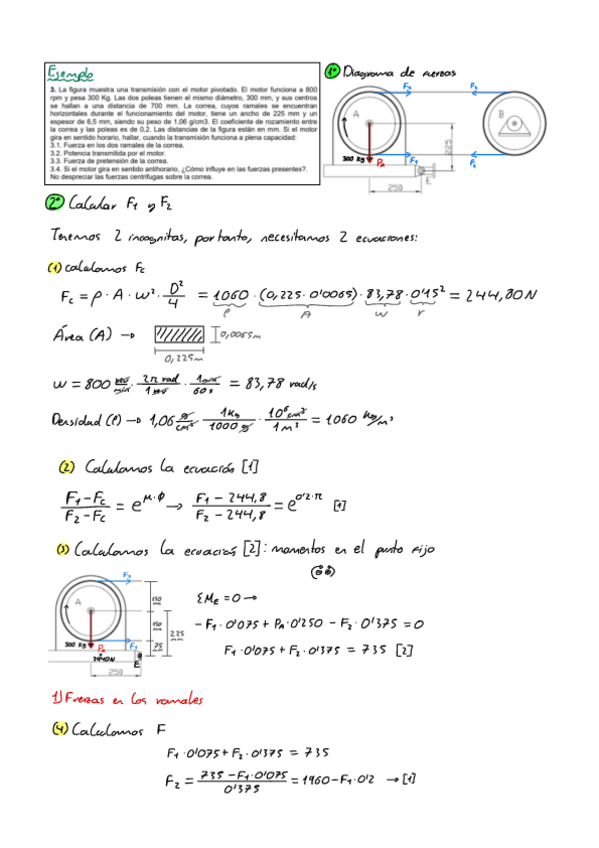 Ejemplo
3. La figura muestra una transmisión con el motor pivotado. El motor funciona a 800
rpm y pesa 300 Kg. Las dos poleas tienen el mismo diámetro, 300 mm, y sus centros
se hallan a una distancia de 700 mm. La correa, cuyos ramales se encuentran
horizontales durante el funcionamiento del motor, tiene un ancho de 225 mm y un
espesor de 6,5 mm, siendo su peso de 1,06 g/cm3. El coeficiente de rozamiento entre
la correa y las poleas es de 0,2. Las distancias de la figura están en mm. Si el motor
gira en sentido horario, hallar, cuando la transmisión funciona a plena capacidad:
3.1. Fuerza en los dos ramales de la correa.
3.2. Potencia transmitida por el motor.
3.3. Fuerza de pretensión de la correa.
3.4. Si el motor gira en sentido antihorario, ¿Cómo influye en las fuerzas presentes?.
No despreciar las fuerzas centrífugas sobre la correa.
1º Diagrama de fuerzas
F2 F2
A B
300 Kg PA F1 F1
225
E
250
2º Calcular F1 y F2
Tenemos 2 incognitas, por tanto, necesitamos 2 ecuaciones:
(1) Calculamos Fc
Fc = ρ · A · w² · D²/4 = 1060 · (0,225 · 0'0065) · 83,78 · 0'15² = 244,80 N
ρ A w r
Área (A) → 0,0065m
0,225m
w = 800 rev/min · 2π rad/1 rev · 1 min/60 s = 83,78 rad/s
Densidad (ρ) → 1,06 g/cm³ · 1 Kg/1000 g · 10⁶ cm³/1 m³ = 1060 Kg/m³
(2) Calculamos la ecuación [1]
F1 - Fc / F2 - Fc = e^μ·φ → F1 - 244,8 / F2 - 244,8 = e^0'2·π [1]
(3) Calculamos la ecuación [2]: momentos en el punto fijo
F2
A
150
150
225
75
300 Kg PA F1
2940N E
250
ΣME = 0 →
- F1 · 0'075 + PA · 0'250 - F2 · 0'375 = 0
F1 · 0'075 + F2 · 0'375 = 735 [2]
1) Fuerzas en los ramales
(4) Calculamos F
F1 · 0'075 + F2 · 0'375 = 735
F2 = 735 - F1 · 0'075 / 0'375 = 1960 - F1 · 0'2 → [1]